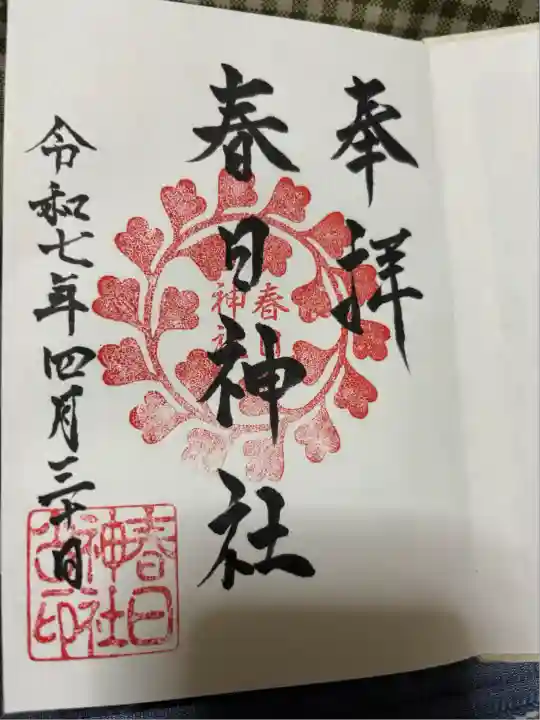 奉拝
春日神社
春日神社
令和七年四月三十日
春日
神社
之印